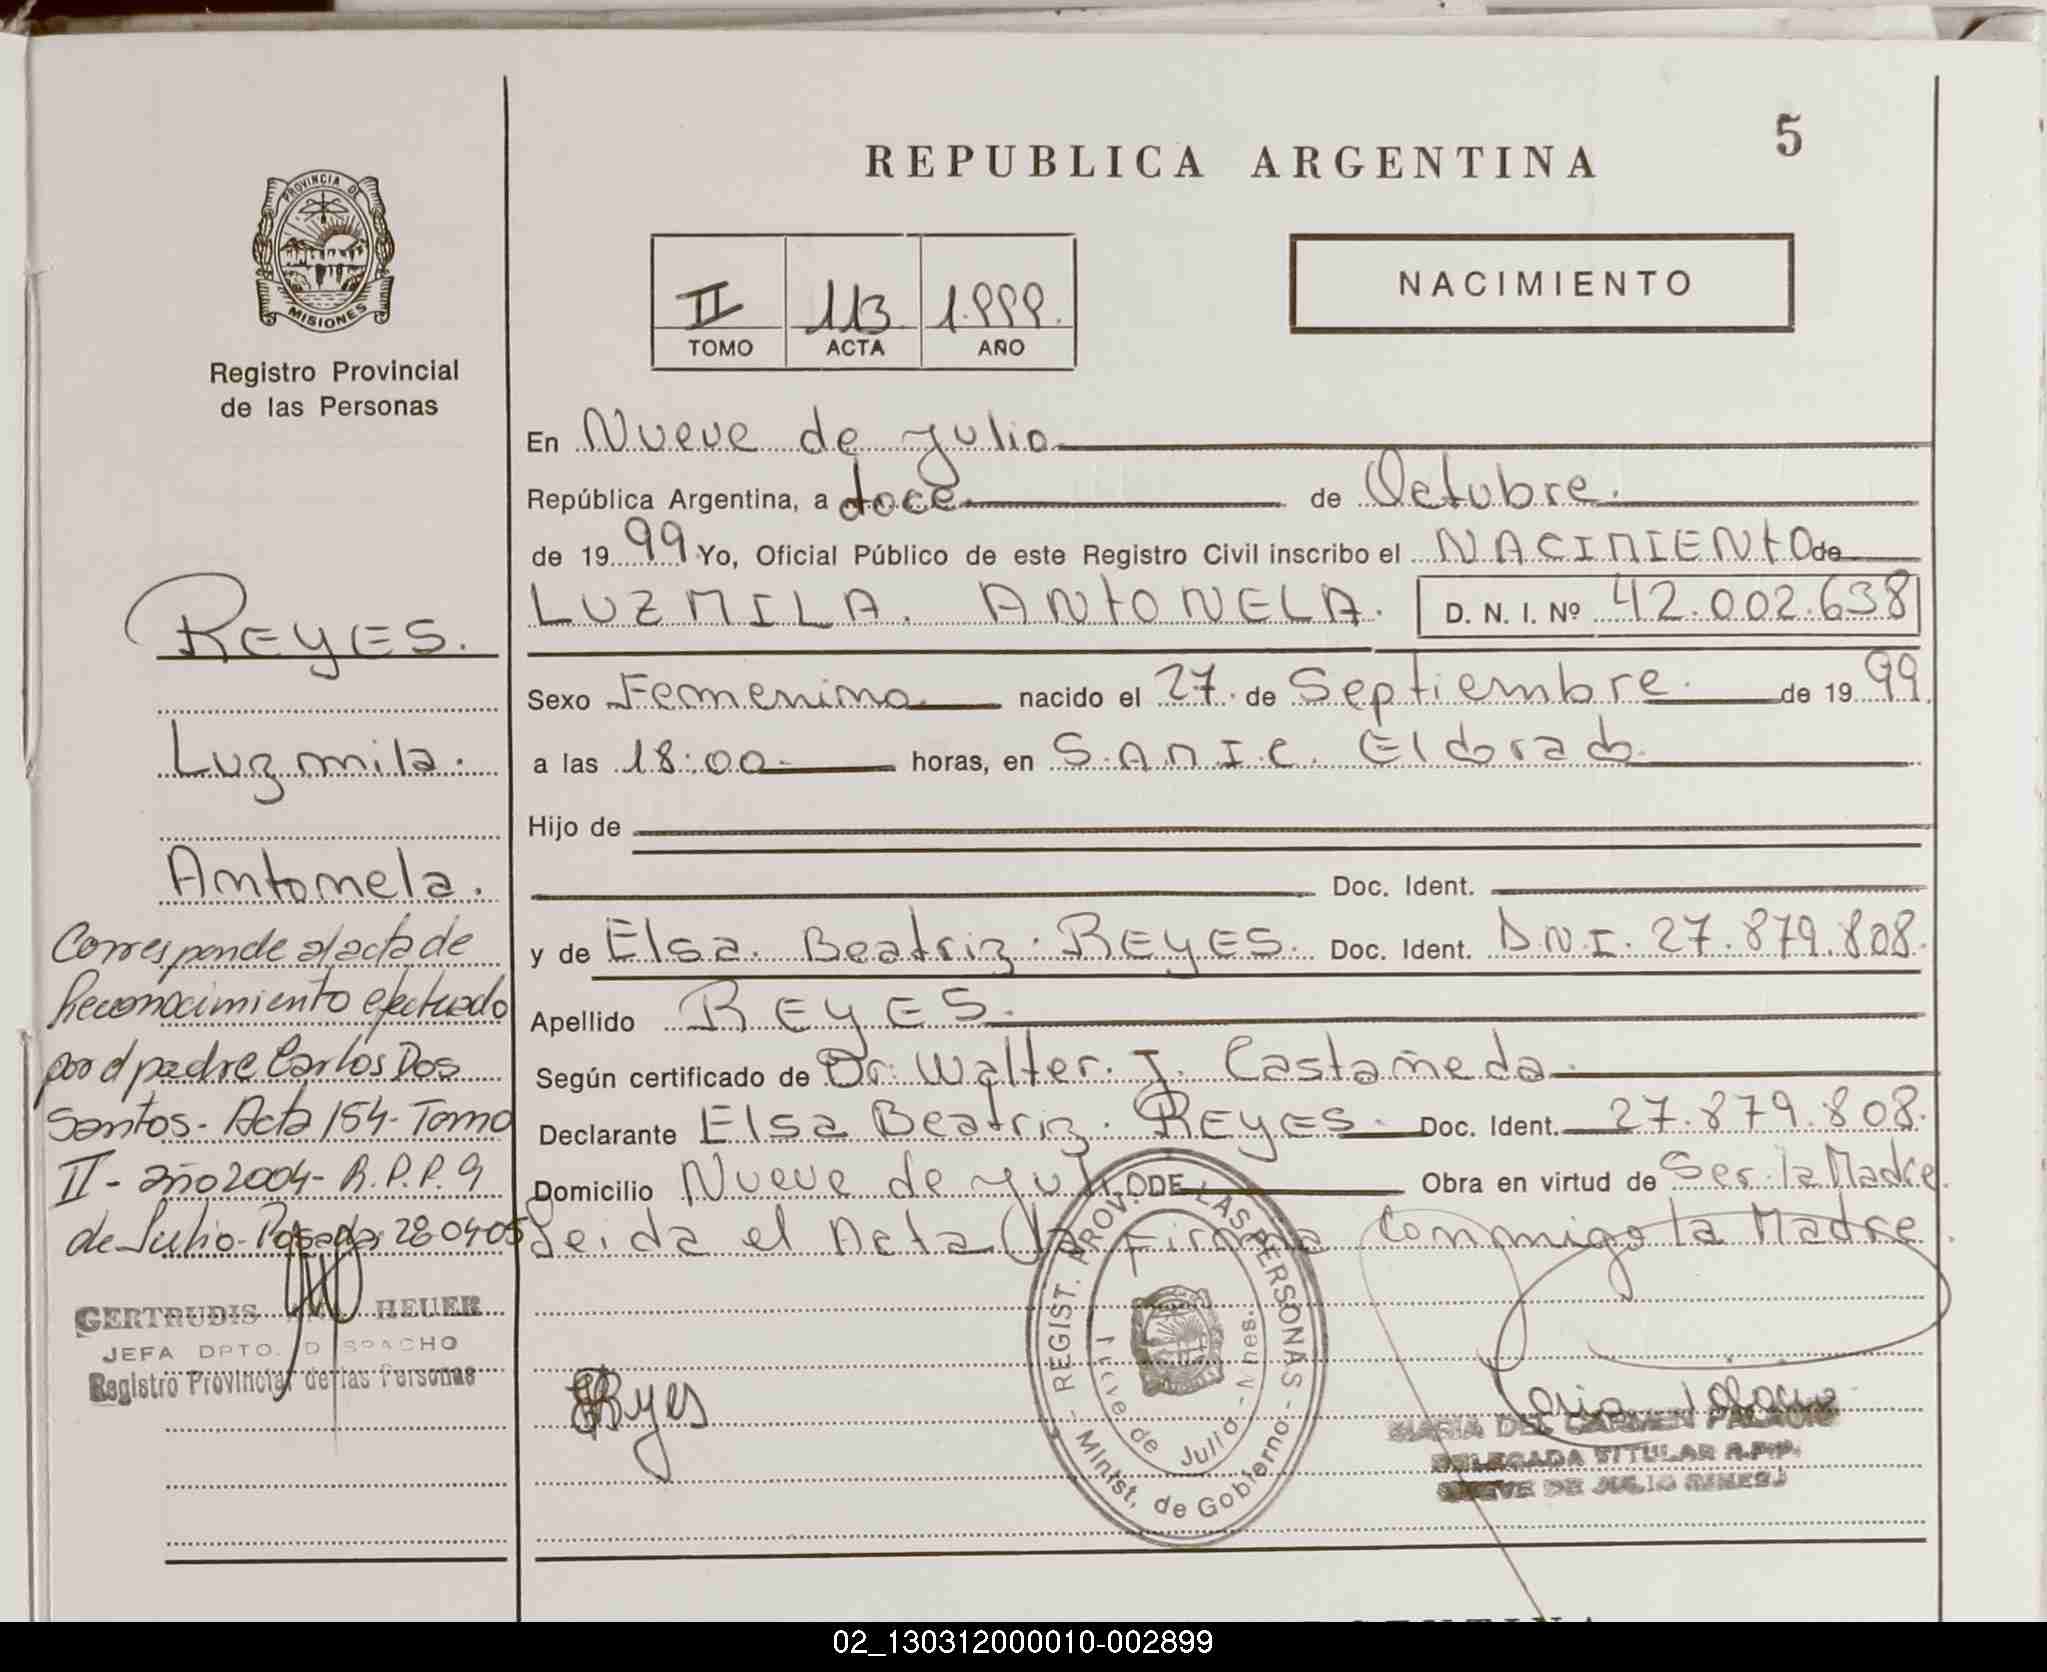 REPUBLICA ARGENTINA
5
PROVINCIA DE
MISIONES
Registro Provincial
de las Personas
II 113 1.999.
TOMO ACTA AÑO
NACIMIENTO
En Nueve de Julio
República Argentina, a doce de Octubre.
de 19 99 Yo, Oficial Público de este Registro Civil inscribo el NACIMIENTO de
LUZMILA. ANTONELA. D. N. I. Nº 42.002.638
Sexo Femenino nacido el 27. de Septiembre. de 19 99.
a las 18:00 horas, en S.A.M.I.C. Eldorado.
Hijo de
Doc. Ident.
y de Elsa. Beatriz. REYES. Doc. Ident. D.N.I. 27.879.808.
Apellido REYES.
Según certificado de Dr. Walter. J. Castañeda.
Declarante Elsa Beatriz. REYES. Doc. Ident. 27.879.808.
Domicilio Nueve de Julio Obra en virtud de Ser la Madre.
Leida el Acta la Firma Conmigo la Madre.
REYES.
Luzmila.
Antonela.
Corresponde al acta de
Reconocimiento efectuado
por el padre Carlos Dos
Santos - Acta 154 - Tomo
II - año 2004 - R.P.P. 9
de Julio - Posadas 28 04 05
GERTRUDIS HEUER
JEFA DPTO. DESPACHO
Registro Provincial de las Personas
REGIST. PROV. DE LAS PERSONAS
Nueve de Julio - Mnes.
Minist. de Gobierno
Reyes
MARIA DEL CARMEN PALACIO
DELEGADA TITULAR R.P.P.
NUEVE DE JULIO (MNES.)
02_130312000010-002899